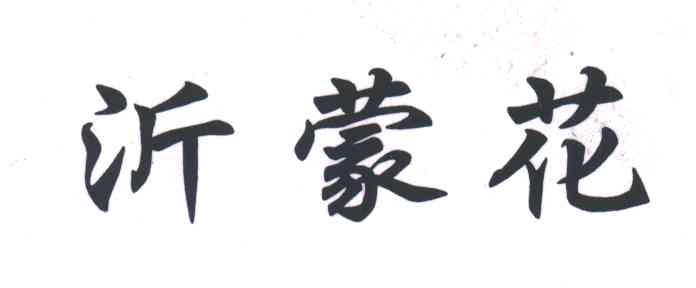 沂蒙花